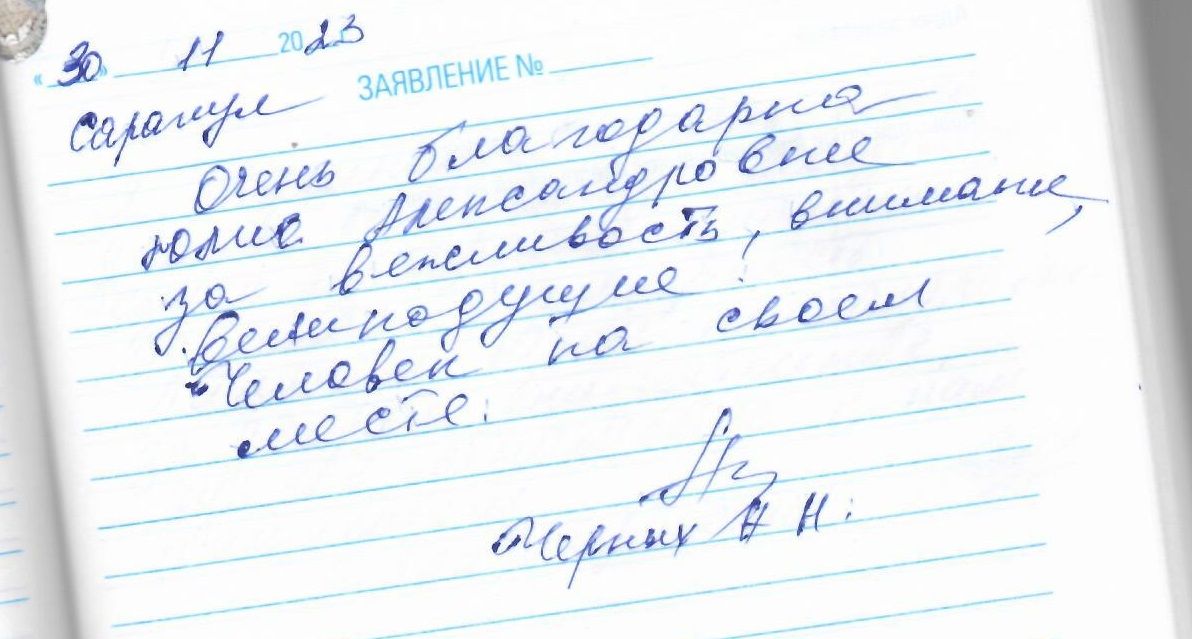 «30» 11 2023
ЗАЯВЛЕНИЕ №
Сарапул
Очень благодарна
Юлие Александровне
за вежливость, внимание,
великодушие!
Человек на своем
месте.
Черных Н Н.